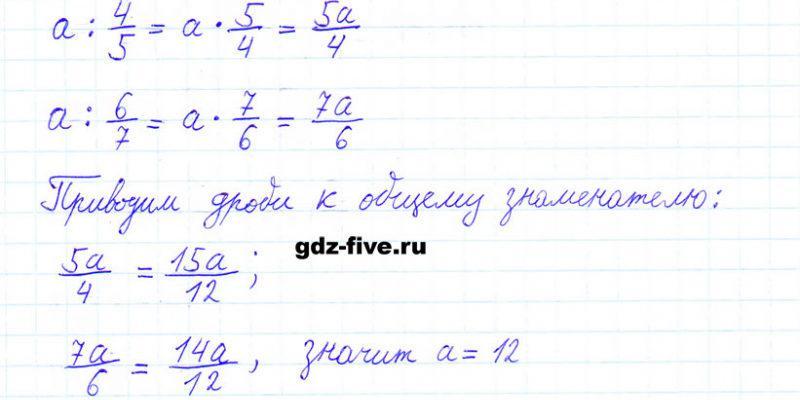 a : 4/5 = a · 5/4 = 5a/4
a : 6/7 = a · 7/6 = 7a/6
Приводим дроби к общему знаменателю:
gdz-five.ru
5a/4 = 15a/12 ;
7a/6 = 14a/12 , значит a = 12